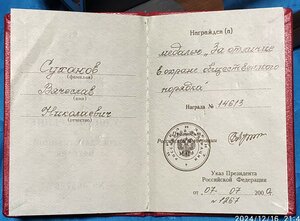 Суханов
(фамилия)
Вячеслав
(имя)
Николаевич
(отчество)
Награжден (а)
медалью „За отличие
в охране общественного
порядка"
Награда № 14613
Президент
Российской Федерации
Указ Президента
Российской Федерации
от 07. 07 200
№ 1267
2024/12/16